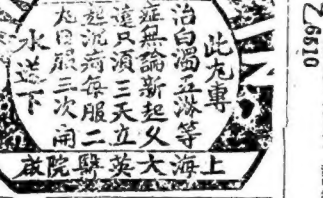 此丸專
治白濁五淋等
症無論新起久
遠只須三天立
起沉疴每服二
丸日服三次開
水送下
上海大英醫院啟